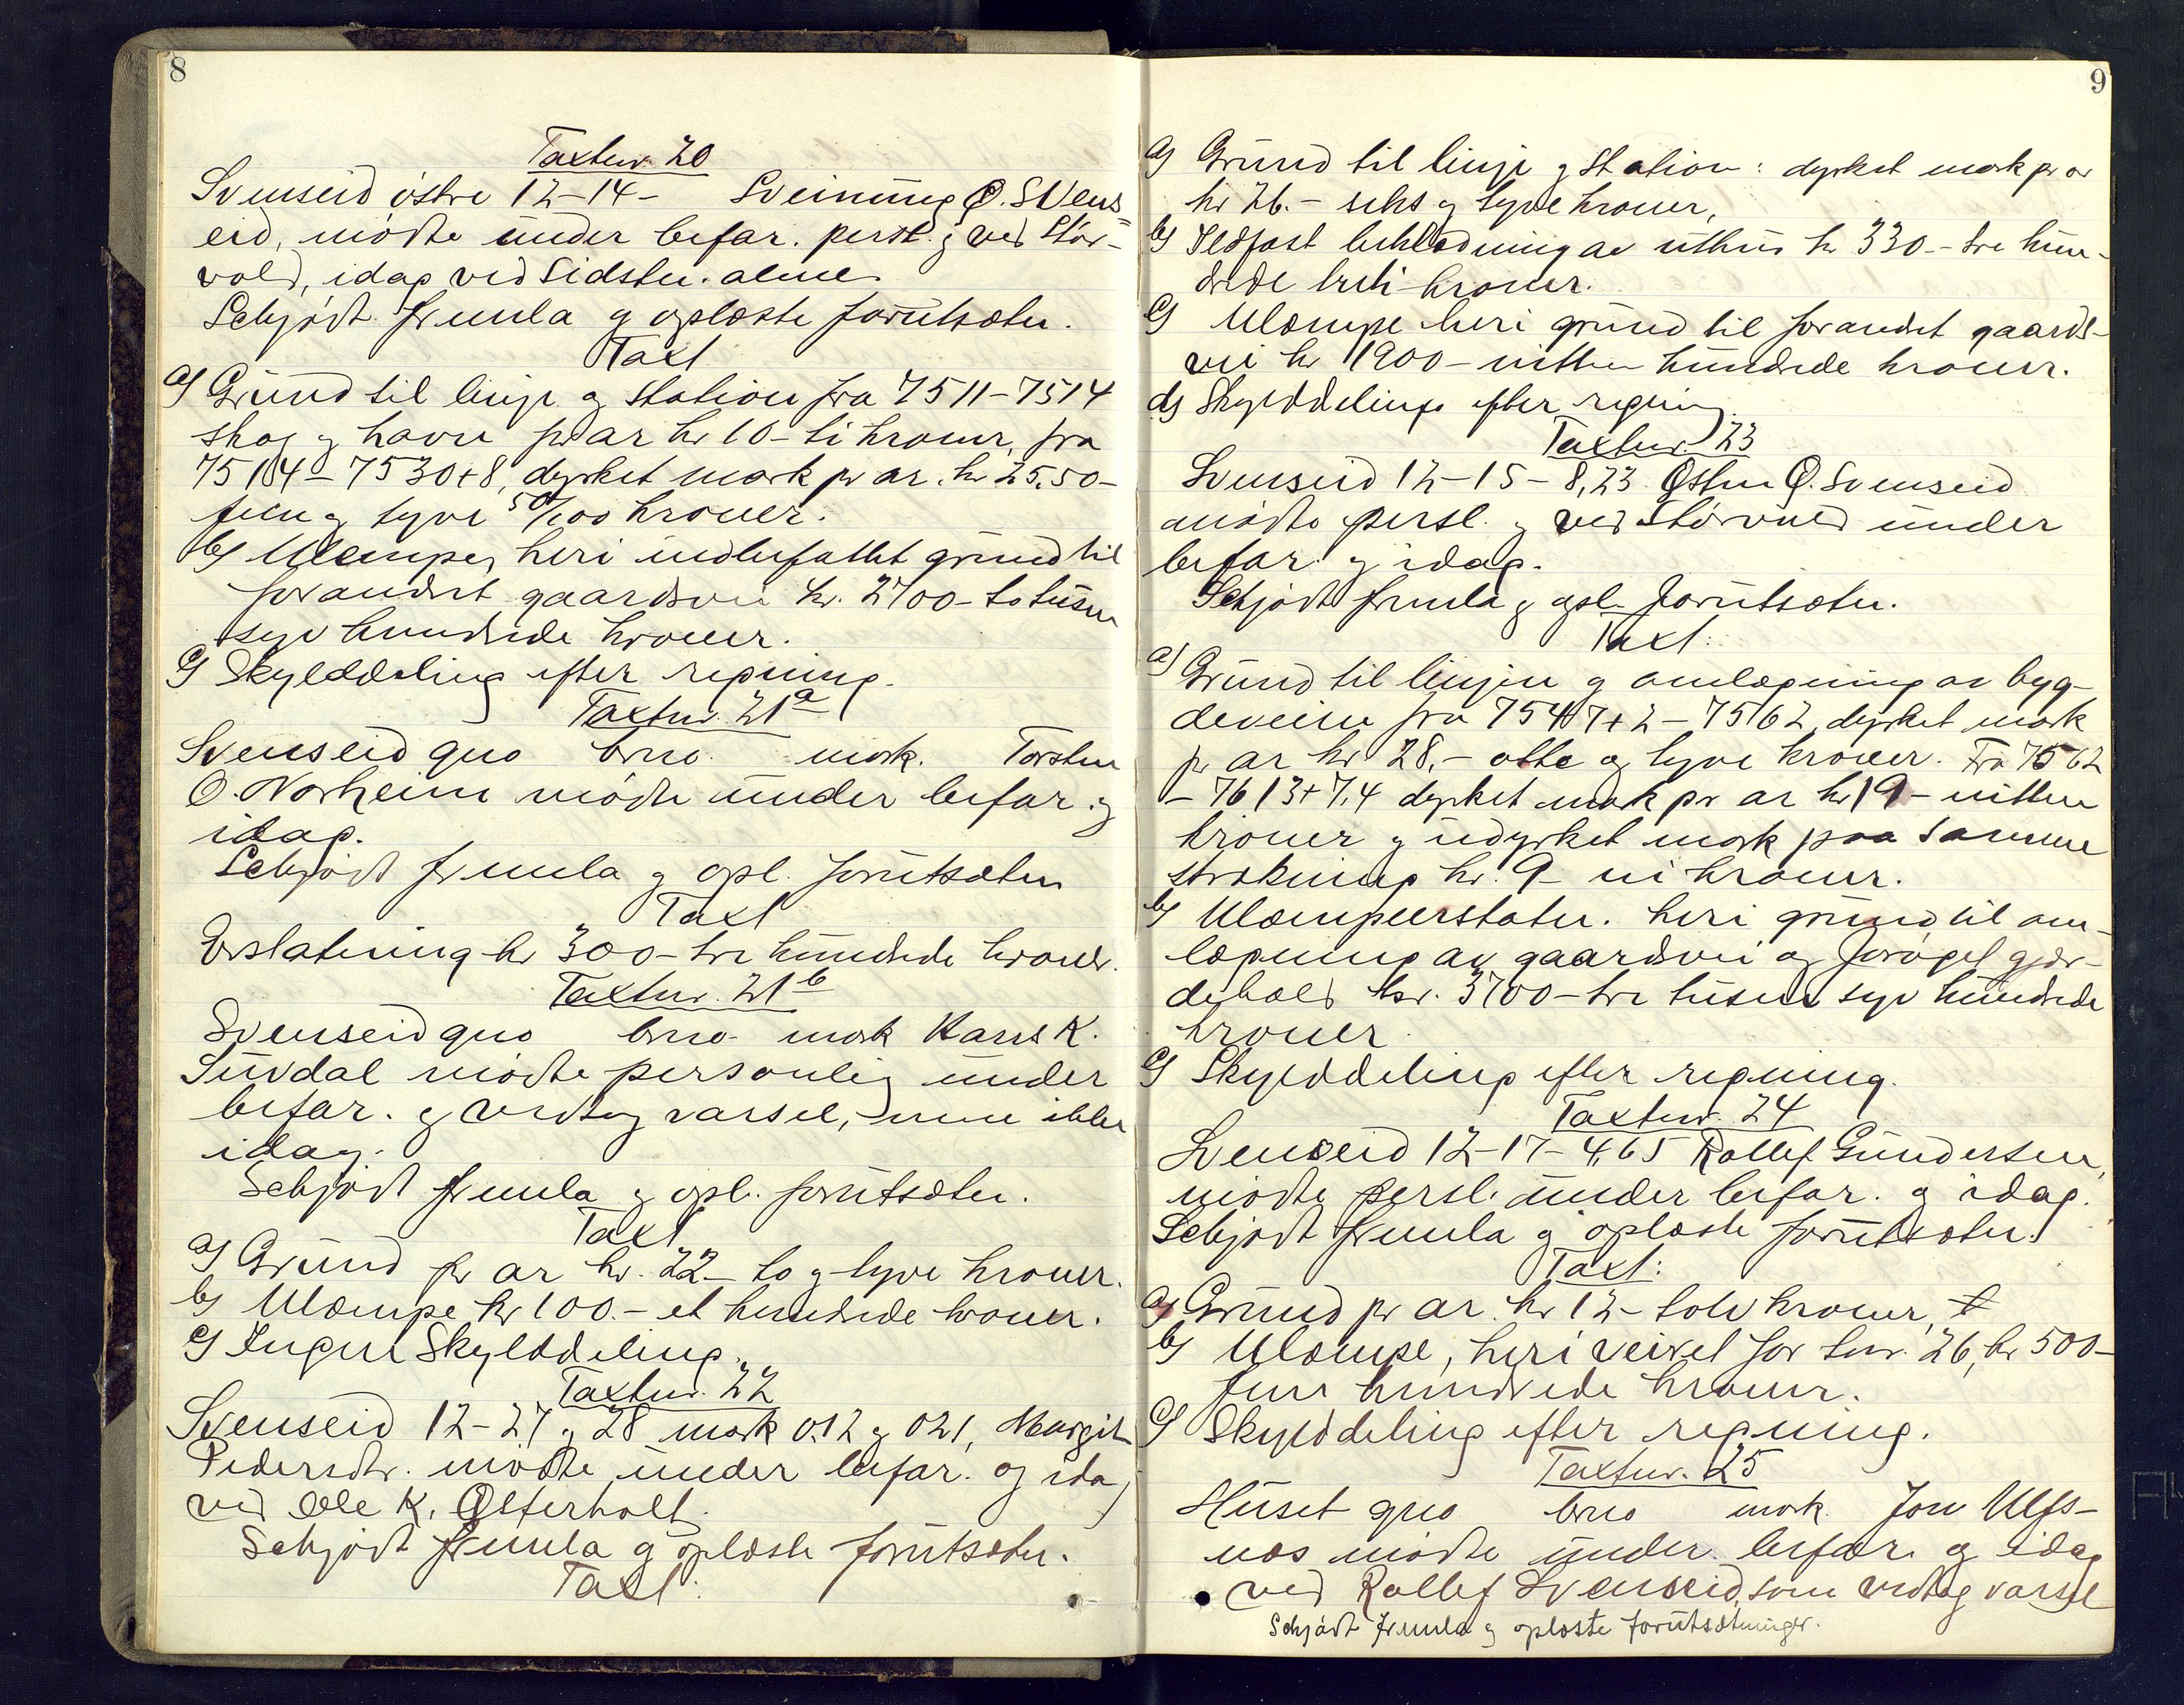 8
Taxtnr. 20
Svenseid östre 12-14- Sveinung O. Svens-
eid, mödte under befar. persl. g ved Stör-
vold, idag ved sidstn. alene
Schjödt freml a g oplæste forutsætn.
Taxt
a) Grund til linje og station fra 7511-7514
skog g havn pr ar kr 10- ti kroner, fra
7514-7530+8, dyrket mark pr ar. kr 25.50-
fem g tyve 50/100 kroner.
b) Ulempe, heri indbefattet grund til
forandret gaardsvei kr. 2700- totusen
syv hundrede kroner.
c) Skylddeling efter regning.
Taxtnr. 21a
Svenseid gno brno. mark. Torsten
O. Norheim mödte under befar. g
idag.
Schjödt freml a g opl. forutsætn
Taxt
Erstatning kr 300- tre hundrede kroner.
Taxtnr. 21b
Svenseid gno brno. mark Hans K.
Suvdal mödte personlig under
befar. g vedtog varsel, men ikke
idag.
Schjödt freml a g opl. forutsætn.
Taxt
a) Grund pr ar kr. 22- to g tyve kroner.
b) Ulæmpe kr 100.- et hundrede kroner.
c) Ingen Skylddeling.
Taxtnr. 22
Svenseid 12-27 g 28 mark 0.12 g 021, Margit
Pedersdtr. mödte under befar. og idag
ved Ole K. Østerholt.
Schjödt freml a g oplæste forutsætn.
Taxt.
9
a) Grund til linje g station: dyrket mark pr ar
kr 26.- seks g tyve kroner,
b) Ildfast beklædning av uthus kr 330- tre hun-
drede treti kroner.
c) Ulæmpe heri grund til forandret gaards-
vei kr 1900- nitten hundrede kroner.
d) Skylddeling efter regning.
Taxtnr. 23
Svenseid 12-15-8,23 Østen O. Svenseid
mödte persl. g ved Störvold under
befar. g idag.
Schjödt freml a g opl. forutsætn.
Taxt:
a) Grund til linjen g omlægning av byg-
deveien fra 7547+2-7562, dyrket mark
pr ar kr 28.- otte og tyve kroner. Fra 7562
-7613+7,4 dyrket mark pr ar kr 19- nitten
kroner g udyrket mark paa samme
strækning kr. 9- ni kroner.
b) Ulæmpeerstatn. heri grund til om-
lægning av gaardsvei og forøget gjær-
dehold kr. 3700- tre tusen syv hundrede
kroner.
c) Skylddeling efter regning.
Taxtnr. 24
Svenseid 12-17-4,65 Rollef Gundersen,
mödte persl. under befar. g idag.
Schjödt freml a g oplæste forutsætn.
Taxt:
a) Grund pr ar. kr 12- tolv kroner,
b) Ulæmpe, heri veiret for tnr. 26, kr 500-
fem hundrede kroner.
c) Skylddeling efter regning.
Taxtnr. 25
Huset gno brno mark. Jon Ulfs-
næs mödte under befar. og idag
ved Rollef Svenseid, som vedtog varsel
Schjödt freml a g oplæste forutsætninger.